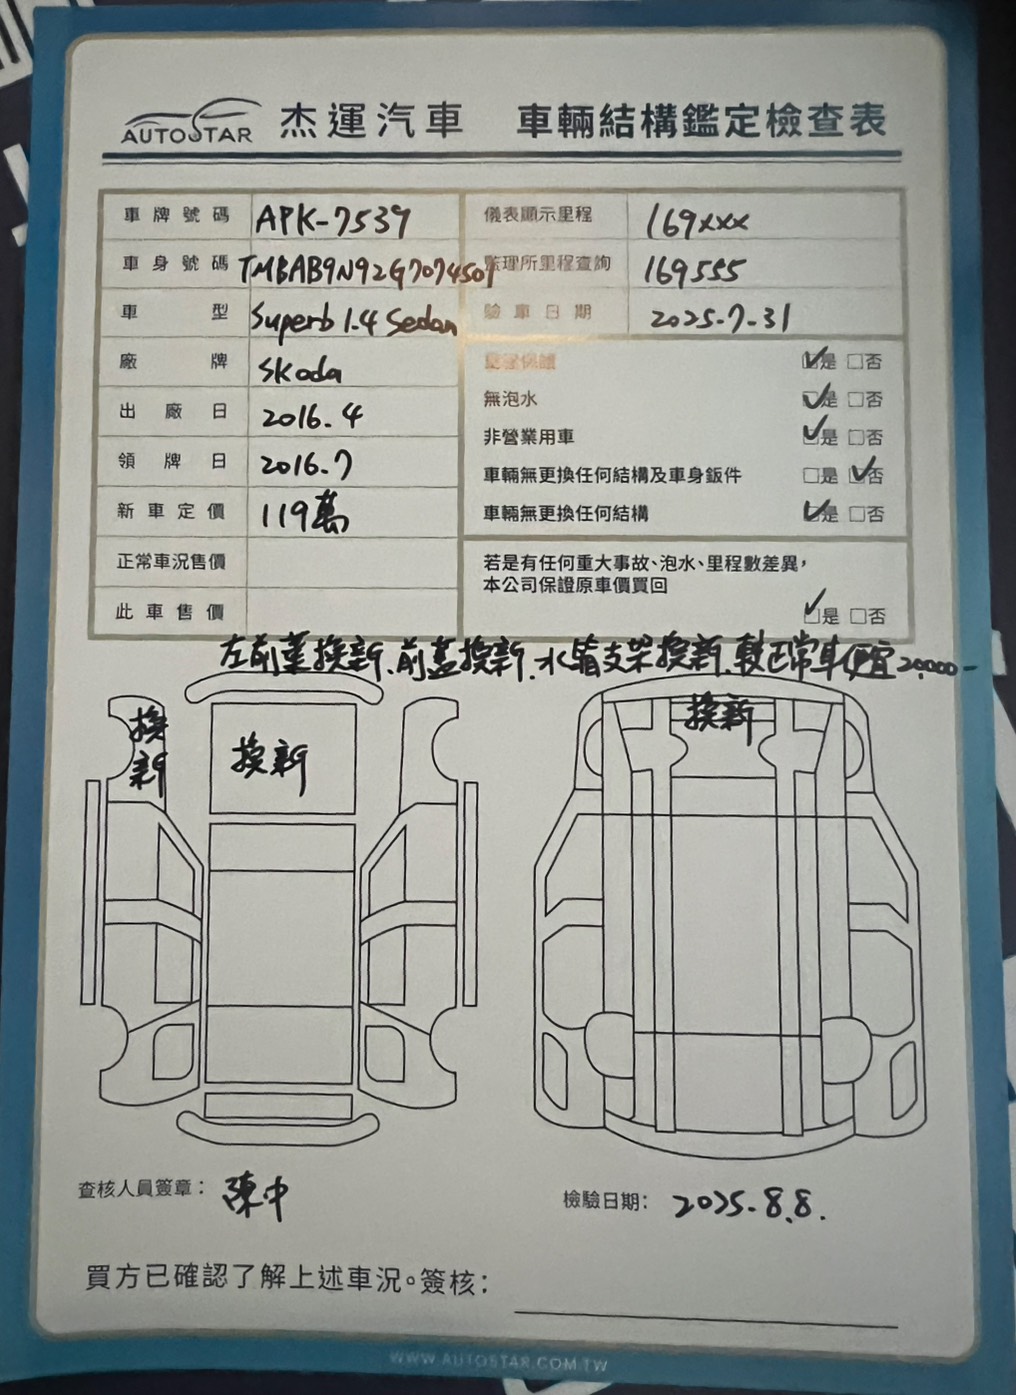 AUTOSTAR 杰運汽車 車輛結構鑑定檢查表
車牌號碼 APK-7539
車身號碼 TMBAB9N92G7074501
車型 Superb 1.4 Sedan
廠牌 Skoda
出廠日 2016.4
領牌日 2016.7
新車定價 119萬
正常車況售價
此車售價
儀表顯示里程 169xxx
監理所里程查詢 169555
驗車日期 2025-7-31
里程保證 ✓是 □否
無泡水 ✓是 □否
非營業用車 ✓是 □否
車輛無更換任何結構及車身鈑件 □是 ✓否
車輛無更換任何結構 ✓是 □否
若是有任何重大事故、泡水、里程數差異,
本公司保證原車價買回
✓是 □否
左前葉換新、前蓋換新、水箱支架換新、較正常車便宜20,000-
換新
換新
換新
查核人員簽章: 陳中
檢驗日期: 2025.8.8.
買方已確認了解上述車況。簽核:
WWW.AUTOSTAR.COM.TW